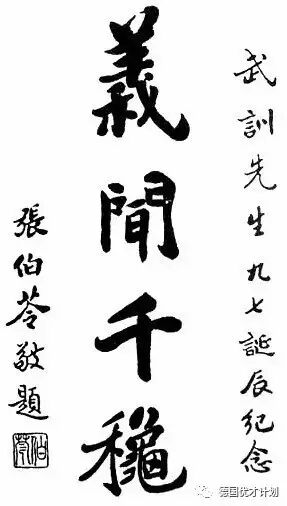 武訓先生九七誕辰紀念
義聞千龝
張伯苓敬題
伯苓
德国优才计划